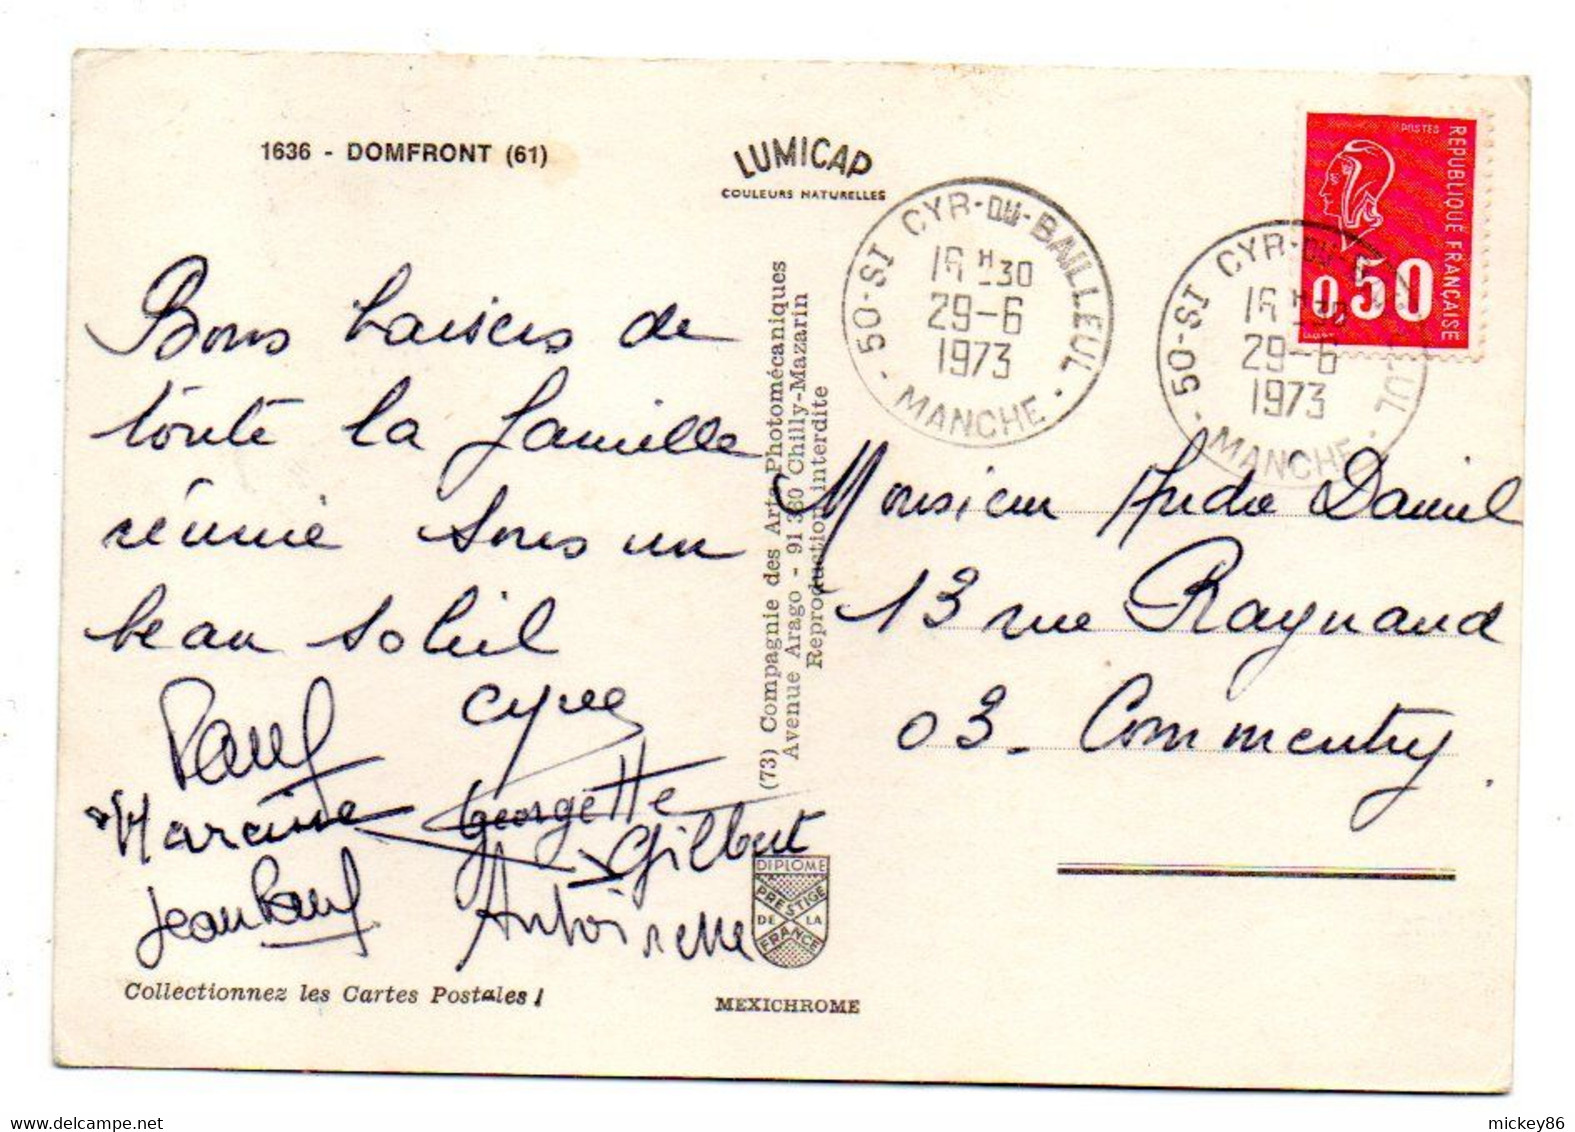 1636 - DOMFRONT (61)
LUMICAP
COULEURS NATURELLES
Bons baisers de
toute la famille
réunie sous un
beau soleil
Paul
Georgette
Gilbert
Jean Paul
Antoinette
Collectionnez les Cartes Postales !
(73) Compagnie des Arts Photomécaniques
Avenue Arago - 91 380 Chilly-Mazarin
Reproduction interdite
DIPLOME
PRESTIGE
DE LA
FRANCE
MEXICHROME
50-ST CYR-DU-BAILLEUL
16 H 30
29-6
1973
MANCHE
50-ST CYR-DU-
16 H 30
29-6
1973
MANCHE
POSTES
REPUBLIQUE FRANÇAISE
0,50
Monsieur André Daniel
13 rue Raynaud
03 - Commentry
mickey86